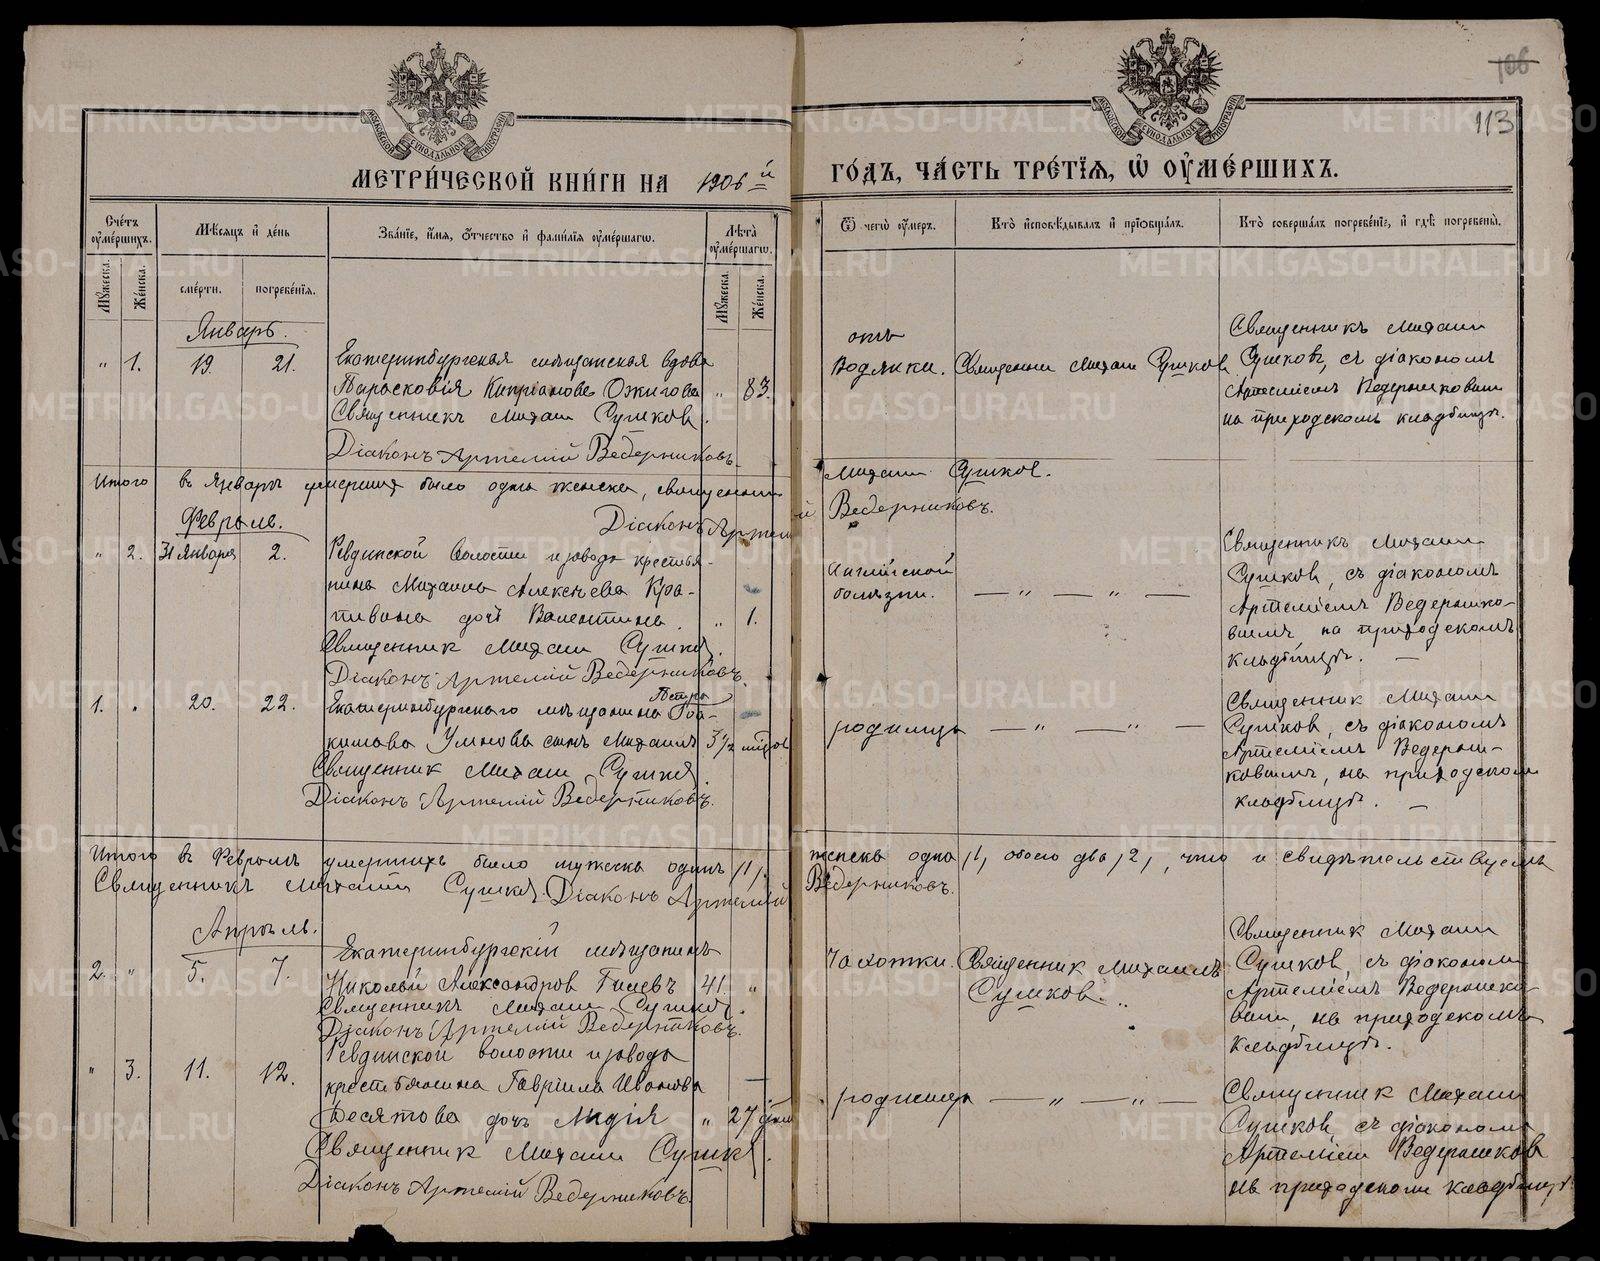 106
113
МЕТРИ́ЧЕСКОЙ КНИ́ГИ НА 1906й
ГО́ДЪ, ЧА́СТЬ ТРЕ́ТІѦ, Ѡ҆ ОУ҆МЕ́РШИХЪ.
Сче́тъ оу҆ме́ршихъ.
Мꙋ́жеска.
Же́нска.
Мѣ́сѧцъ и҆ де́нь
сме́рти.
погребе́нїѧ.
Зва́нїе, и҆́мѧ, ѻ҆́тчество и҆ фами́лїѧ оу҆ме́ршагѡ.
Лѣ́та оу҆ме́ршагѡ.
Мꙋ́жеска.
Же́нска.
Ѿ чегѡ̀ оу҆́меръ.
Кто̀ и҆сповѣ́дывалъ и҆ прїѡбща́лъ.
Кто̀ соверша́лъ погребе́нїе, и҆ гдѣ̀ погребены̀.
Январь.
" 1. 19. 21. Екатеринбургская мѣщанская вдова
Парасковія Кипріанова Ожигова " 83.
Священникъ Михаил Сушков.
Діаконъ Артемій Ведерниковъ.
отъ
Водянки. Священник Михаил Сушков
Священникъ Михаил
Сушковъ, съ діакономъ
Артеміемъ Ведерниковым
на приходскомъ кладбищѣ.
Итого въ Январѣ умерших было одна женска, священник
Михаил Сушков.
Діаконъ Артемій Ведерниковъ.
Февраль.
" 2. 31 Января 2. Ревдинской волости и завода крестья-
нина Михаила Алексѣева Кра-
пивина дочь Валентина. " 1.
Священник Михаил Сушков.
Діаконъ Артемій Ведерниковъ.
Английской
болѣзни. — " — " —
Священникъ Михаил
Сушков, съ діакономъ
Артеміемъ Ведернико-
вымъ, на приходскомъ
кладбищѣ. —
Петра
1. " 20. 22. Екатеринбургскаго мѣщанина Іоа-
кимова Умнова сынъ Михаилъ 3½ мѣсяц
Священник Михаил Сушков.
Діаконъ Артемій Ведерниковъ.
родимца — " — " —
Священник Михаил
Сушков, съ діакономъ
Артеміемъ Ведерни-
ковымъ, на приходском
кладбищѣ. —
Итого въ Февралѣ умершихъ было мужска одинъ /1/,
женска одна /1/, обоего два /2/, что и свидѣтельствуемъ
Священникъ Михаил Сушков. Діаконъ Артемій
Ведерниковъ.
Апрѣль.
2. " 5. 7. Екатеринбургскій мѣщанинъ
Николай Александров Гилевъ 41. "
Священникъ Михаил Сушков.
Діаконъ Артемій Ведерниковъ.
Чахотки. Священник Михаилъ
Сушков. "
Священник Михаил
Сушков, съ діаконом
Артеміемъ Ведернико-
вым, на приходскомъ
кладбищѣ.
" 3. 11. 12. Ревдинской волости и завода
крестьянина Гавріила Иванова
Десятова дочь Лидія " 27 дней
Священник Михаил Сушков.
Діаконъ Артемій Ведерниковъ.
родимца — " — " —
Священник Михаил
Сушков, съ діаконом
Артеміем Ведерников
на приходском кладбищѣ